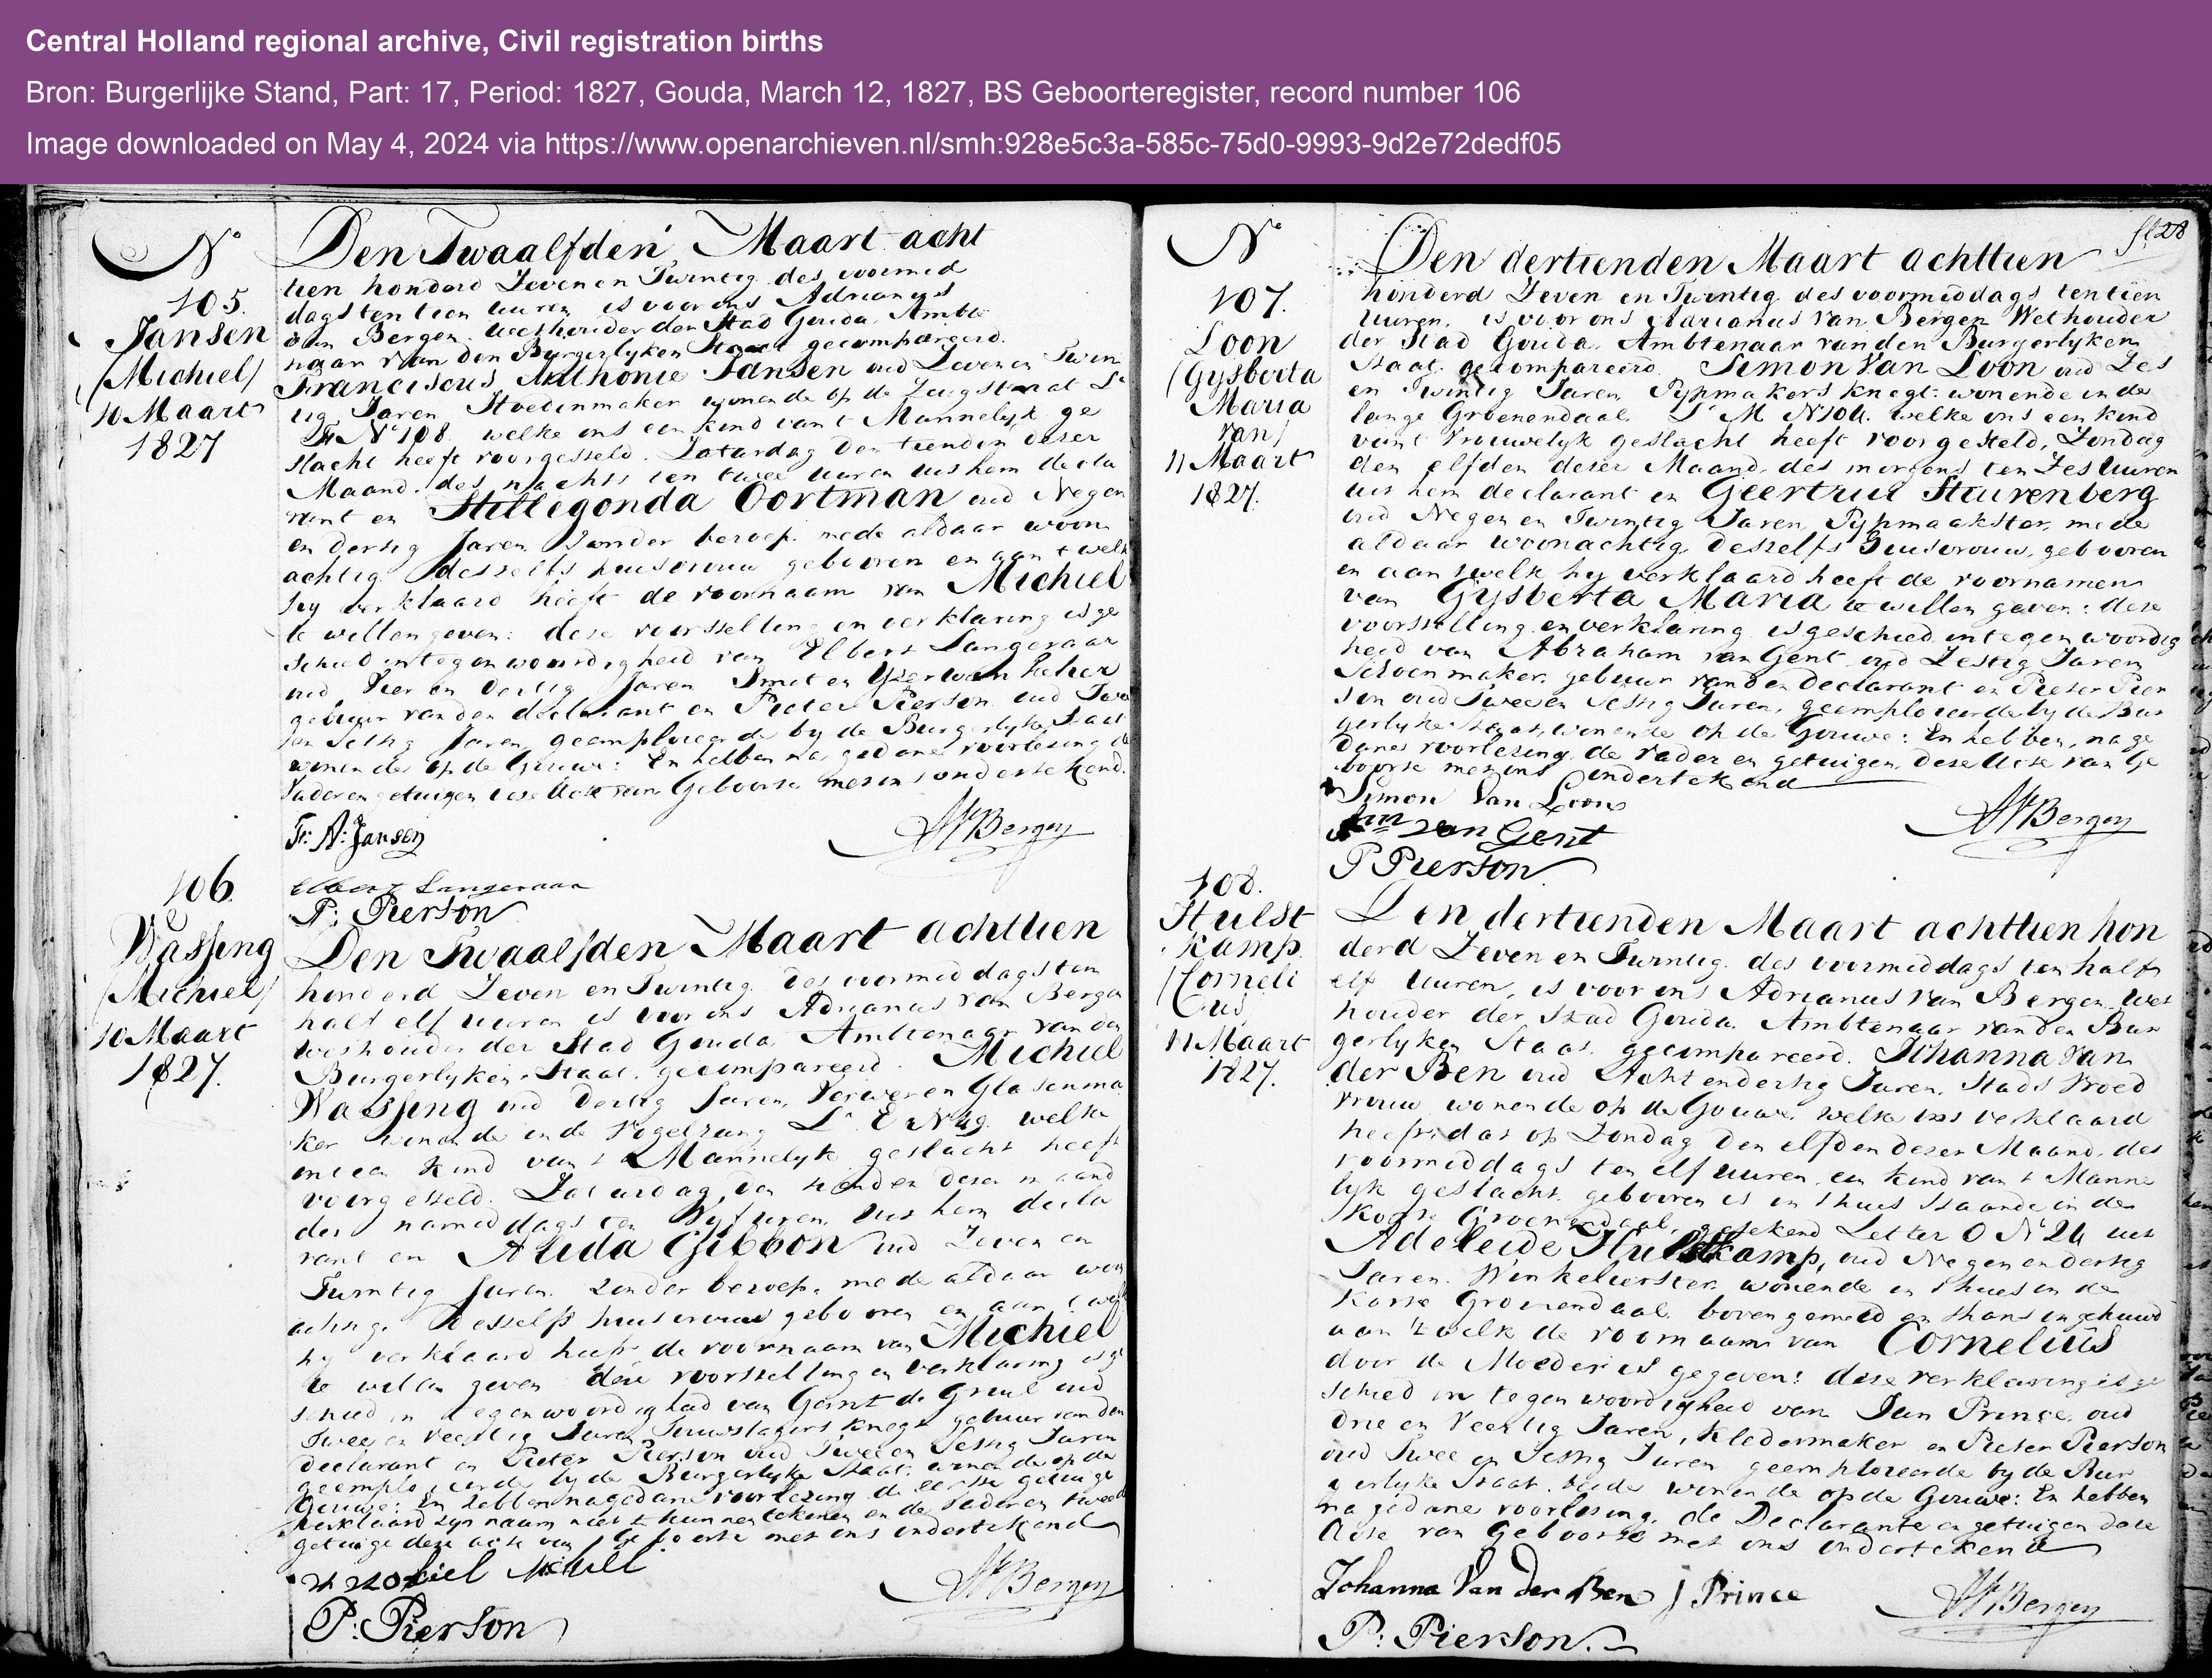 Central Holland regional archive, Civil registration births
Bron: Burgerlijke Stand, Part: 17, Period: 1827, Gouda, March 12, 1827, BS Geboorteregister, record number 106
Image downloaded on May 4, 2024 via https://www.openarchieven.nl/smh:928e5c3a-585c-75d0-9993-9d2e72dedf05
No
105.
Jansen
(Michiel)
10 Maart
1827
Den Twaalfden Maart acht
tien honderd Zeven en Twintig des voormid
dags ten tien uuren is voor ons Adrianus
van Bergen Wethouder der Stad Gouda Ambte
naar van den Burgerlyken Staat gecompareerd.
Franciscus Anthonie Jansen oud Zeven en Twin
tig Jaren Stoelenmaker wonende op de Zeugstraat La
No 108 welke ons een kind van t Mannelyk ge
slacht heeft voorgesteld. Zaturdag den tienden dezer
Maand des nachts ten twee uuren uit hem decla
rant en Hillegonda Oortman oud Negen
en dertig Jaren Zonder beroep mede aldaar woon
achtig desselfs huisvrouw gebooren en aan t welk
hy verklaard heeft de voornaam van Michiel
te willen geven: deze voorstelling en verklaring is ge
schied in tegenwoordigheid van Elbert Langeraar
oud Vier en dertig Jaren Smit en
gebuur van den declarant en Pieter Pierson oud Twee
en Sestig Jaren geemploieerde by de Burgerlyke Staat
wonende op de Gouwe: En hebben na gedane voorlesing de
Vader en getuigen deze Acte van Geboorte met ons ondertekend.
Fr: A: Jansen
AVBergen
Elbert Langeraar
P: Pierson
106.
Wassing
(Michiel)
10 Maart
1827.
Den Twaalfden Maart achttien
honderd Zeven en Twintig des voormiddags ten
half elf uuren is voor ons Adrianus van Bergen
Wethouder der Stad Gouda Ambtenaar van den
Burgerlyken Staat, gecompareerd. Michiel
Wassing oud dertig Jaren, Verwer en Glasenma
ker wonende in de Vogelzang La E No 49. welke
ons een kind van t Mannelyk geslacht heeft
voorgesteld. Zaturdag, den tienden dezer maand
des namiddags ten Vyf uuren uit hem decla
rant en Alida Gibbon oud Zeven en
Twintig Jaren Zonder beroep, mede aldaar woon
achtig. desselfs huisvrouw gebooren en aan t welk
hy verklaard heeft de voornaam van Michiel
te willen geven deze voorstelling en verklaring is ge
schied in tegenwoordigheid van Gerrit de Gruil oud
Twee en Veertig Jaren Touwslagers knegt gebuur van den
declarant en Pieter Pierson oud Twee en Sestig Jaren
geemploieerde by de Burgerlyke Staat. wonende op de
Gouwe: En hebben na gedane voorlezing de eerste getuige
verklaard zyn naam niet te kunnen tekenen en de Vader en tweede
getuige deze acte van Geboorte met ons ondertekend
P: Pierson
AVBergen
fl 28
No
107.
Loon
(Gysberta
Maria
van)
11 Maart
1827.
Den dertienden Maart achttien
honderd Zeven en Twintig des voormiddags ten tien
Uuren, is voor ons Adrianus van Bergen Wethouder
der Stad Gouda, Ambtenaar van den Burgerlyken
Staat, gecompareerd. Simon Van Loon oud Zes
en Twintig Jaren, Pypmakers knegt. wonende in de
lange Groenendaal. La M No 104. welke ons een kind
van t Vrouwelyk geslacht heeft voorgesteld, Zondag
den elfden dezer Maand des morgens ten Zes Uuren
uit hem declarant en Geertrui Sturenberg
oud Negen en Twintig Jaren, Pypmaakster, mede
aldaar woonachtig, desselfs Huisvrouw, gebooren
en aan twelk hy verklaard heeft de voornamen
van Gysberta Maria te willen geven: deze
voorstelling en verklaring is geschied in tegenwoordig
heid van Abraham van Gent oud Zestig Jaren
Schoenmaker, gebuur van den Declarant en Pieter Pier
son oud Twee en Sestig Jaren, geemploieerde by de Bur
gerlyke Staat, wonende op de Gouwe: En hebben, na ge
dane voorlezing de Vader en getuigen deze Acte van Ge
boorte met ons ondertekend
Simon Van Loon
Abm van Gent
AVBergen
P Pierson
108.
Hulst
kamp
(Corneli
us)
11 Maart
1827.
Den dertienden Maart achttien hon
derd Zeven en Twintig des voormiddags ten half
elf Uuren, is voor ons Adrianus van Bergen Wet
houder der Stad Gouda. Ambtenaar van den Bur
gerlyken Staat. gecompareerd. Johanna van
der Ben oud Acht en dertig Jaren, Stads Vroed
vrouw wonende op de Gouwe, welke ons verklaard
heeft, dat op Zondag den elfden dezer Maand, des
voormiddags ten elf uuren, een kind van t Manne
lyk geslacht, gebooren is in t huis staande in de
Korte Groenendaal, getekend Letter O No 24 uit
Adeleide Hulstkamp, oud Negen en dertig
Jaren. Winkelierster, wonende in t huis in de
Korte Groenendaal bovengemeld en thans ongehuwd
aan 't welk de voornaam van Cornelius
door de Moeder is gegeven: deze verklaring is ge
schied in tegenwoordigheid van Jan Prince, oud
drie en Veertig Jaren, kledermaker en Pieter Pierson
oud Twee en Sestig Jaren geemploieerde by de Bur
gerlyke Staat. beide wonende op de Gouwe: En hebben
na gedane voorlesing, de Declarante en getuigen deze
Acte van Geboorte met ons ondertekend
Johanna Van der Ben J Prince
AVBergen
P: Pierson.